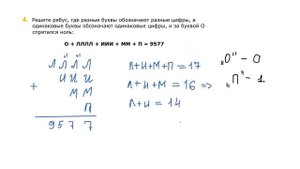 4. Решите ребус, где разные буквы обозначают разные цифры, а
одинаковые буквы обозначают одинаковые цифры, и за буквой О
спрятался ноль:
О + ЛЛЛЛ + ИИИ + ММ + П = 9577
Л Л Л Л
И И И
+ М М
П
9 5 7 7
Л+И+М+П=17
Л+И+М = 16 =>
Л+И = 14
"О" - 0
"П" - 1